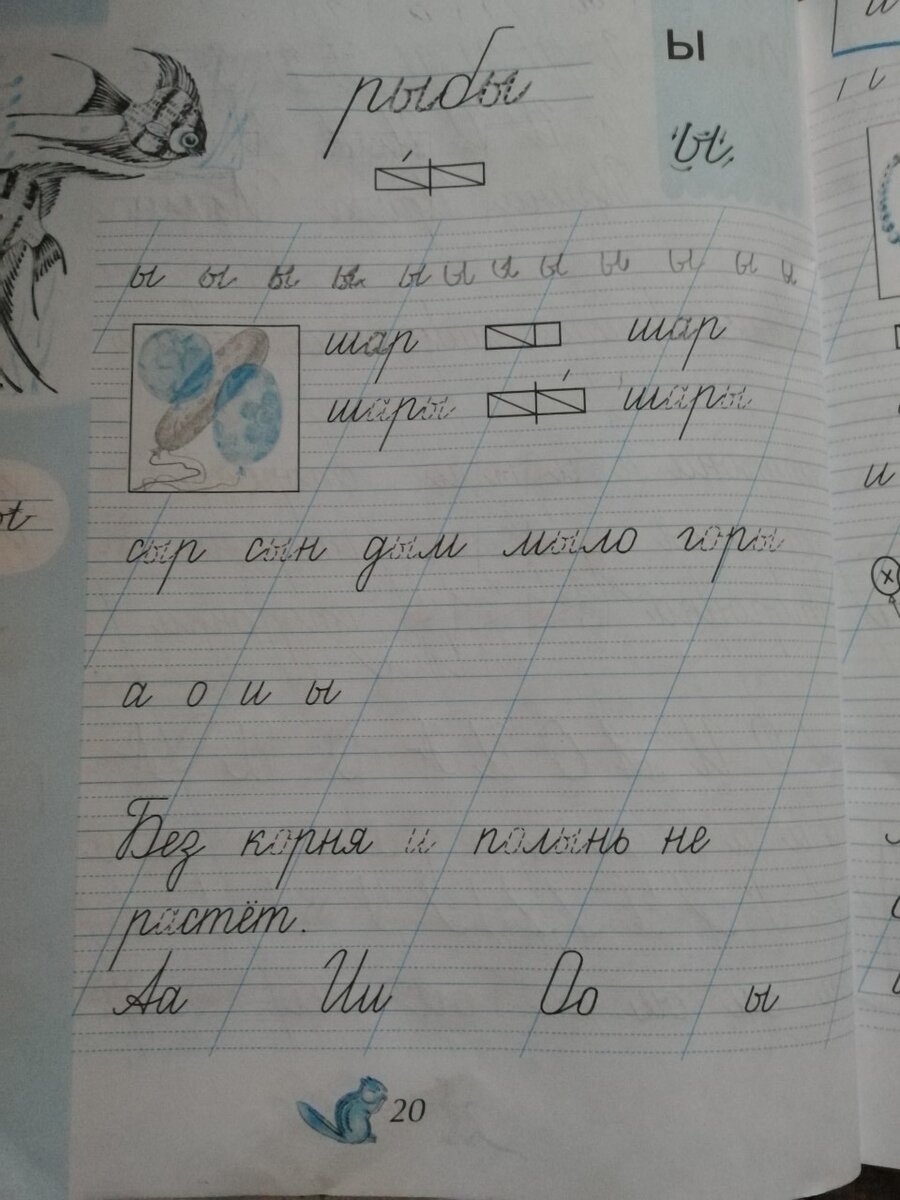 рыбы
ы
ы
ы ы ы ы ы ы ы ы ы ы ы ы
шар шар
шары шары
сыр сын дым мыло горы
а о и ы
Без корня и полынь не
растёт.
Аа Ии Оо ы
20
и
х